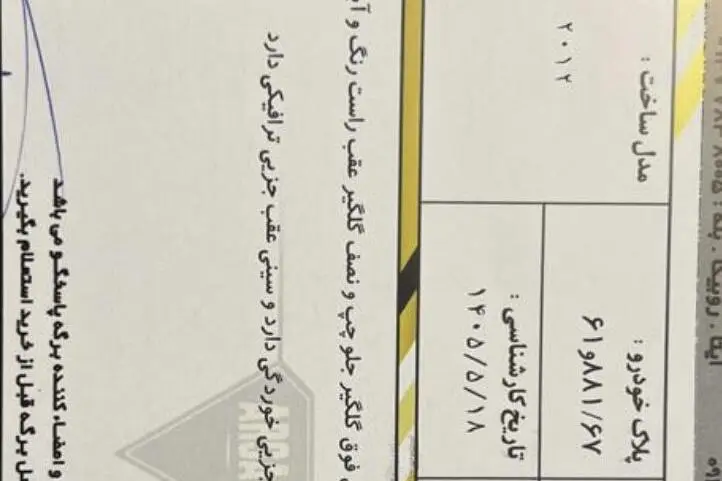 مدل ساخت :
۲۰۱۲
پلاک خودرو :
۶۱و۸۸۱/۶۷
تاریخ کارشناسی :
۱۴۰۵/۵/۱۸
فوق گلگیر جلو چپ و نصف گلگیر عقب راست رنگ و
جزیی خوردگی دارد و سینی عقب جزیی ترافیکی دارد
ARGA
و امضاء کننده برگه پاسخگو می باشد
برگه قبل از خرید استعلام بگیرید.